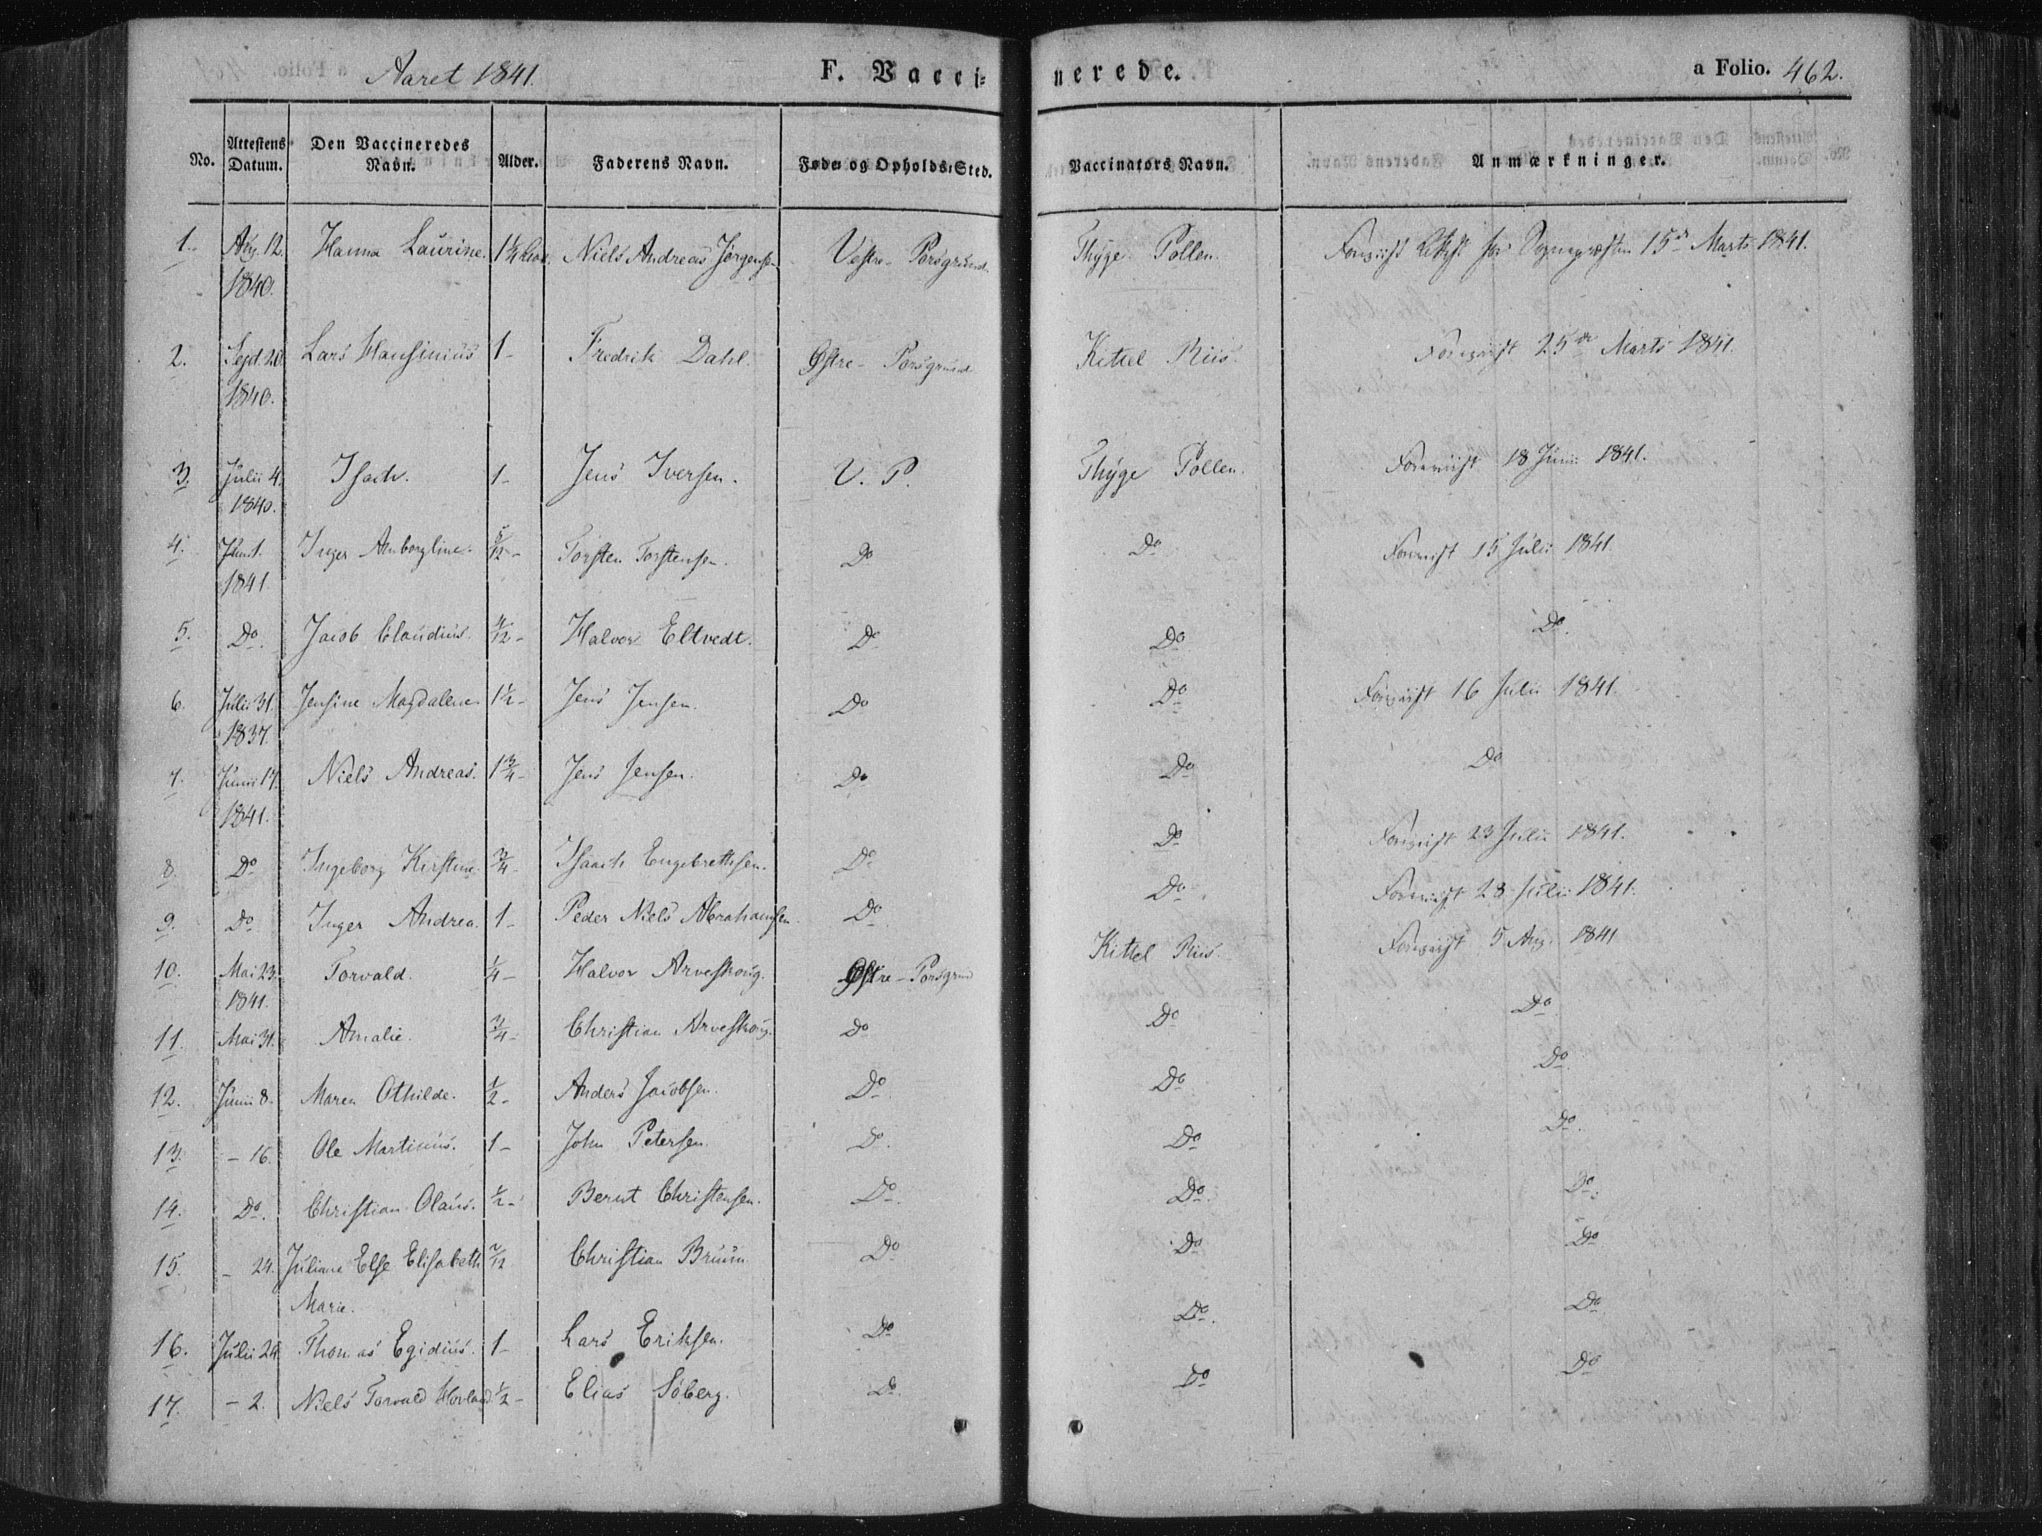 Aaret 1841. F. Vacci= nerede. a Folio. 462.
No. Attestens Datum. Den Vaccineredes Navn. Alder. Faderens Navn. Føde= og Opholds=Sted. Vaccinators Navn. Anmærkninger.
1. Aug. 12. Hanna Laurine. 1 1/4 Niels Andreas Jørgensen Vestre- Porsgrund. Thyge Pollen. Foreviist Sognepræsten 15de Marts 1841.
1840.
2. Sept. Lars Hansinius 1- Fredrik Dahl. Østre- Porsgrund Kittel Riis. Foreviist 25de Marts 1841.
1840.
3. Julii 4. Isach. 1- Jens Iversen. V. P. Thyge Pollen. Foreviist 18 Junii 1841.
1840.
4. Juni 1. Inger Amborgline. 5/12- Torsten Torstensen. Do Do Foreviist 15 Julii 1841.
1841.
5. Do. Jacob Claudius. 4/12- Halvor Eltvedt. Do Do. Do.
6. Julii 31. Jensine Magdalene 1 1/2- Jens Jensen. Do Do Foreviist 16 Julii 1841.
1837.
7. Junii 17. Niels Andreas. 1 3/4- Jens Jensen. Do Do Do
1841.
8. Do Ingeborg Kirstine 3/4- Isaach Engebrethsen. Do Do Foreviist 23 Julii 1841.
9. Do Inger Andrea. 1- Peder Niels Abrahamsen. Do Do. Foreviist 28 Julii 1841.
10. Mai 23. Torvald. 1/4- Halvor Arveskoug. Østre- Porsgrund Kittel Riis. Foreviist 5 Aug. 1841
1841.
11. Mai 31. Amalie. 3/4- Christian Arveskoug. Do Do Do
12. Junii 8. Maren Othilde. 1/2- Anders Jacobsen. Do Do Do
13. - 16. Ole Martinus. 1- John Petersen. Do. Do Do.
14. Do. Christian Olaus. 1/2- Bernt Christensen. Do. Do. Do.
15. - 24. Juliane Else Elisabeth 7/12 Christian Bruun Do Do Do
Marie.
16. Julii 24. Thomas Egidius. 1- Lars Eriksen. Do Do. Do
17. - 2. Niels Torvald 1/2- Elias Søberg. Do. Do Do